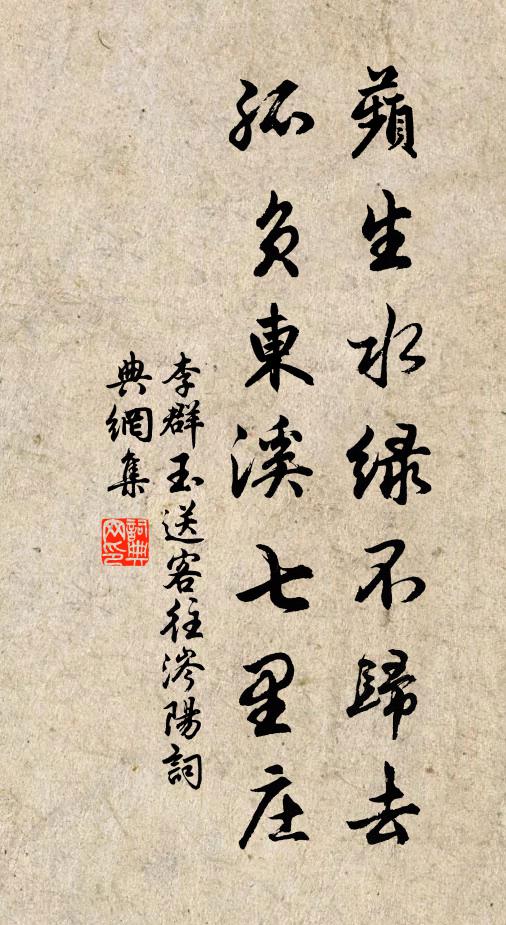 蘋生水緑不歸去
孤負東溪七里庄
李群玉送客往涔陽詞
典網集
詞典
网印